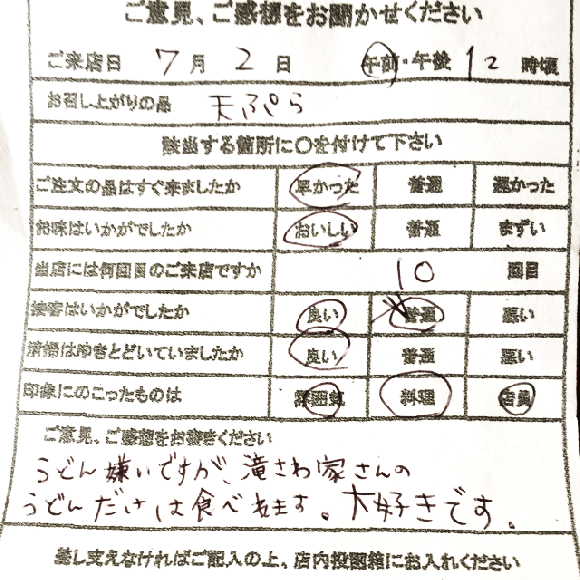 ご意見、ご感想をお聞かせください
ご来店日 7月2日 午前・午後 12時頃
お召し上がりの品 天ぷら
該当する箇所に〇を付けて下さい
ご注文の品はすぐ来ましたか 早かった 普通 遅かった
お味はいかがでしたか おいしい 普通 まずい
当店には何回目のご来店ですか 10 回目
接客はいかがでしたか 良い 普通 悪い
清掃はゆきとどいていましたか 良い 普通 悪い
印象にのこったものは 雰囲気 料理 店員
ご意見、ご感想をお書きください
うどん嫌いですが、滝さわ家さんの
うどんだけは食べれます。大好きです。
差し支えなければご記入の上、店内投函箱にお入れください